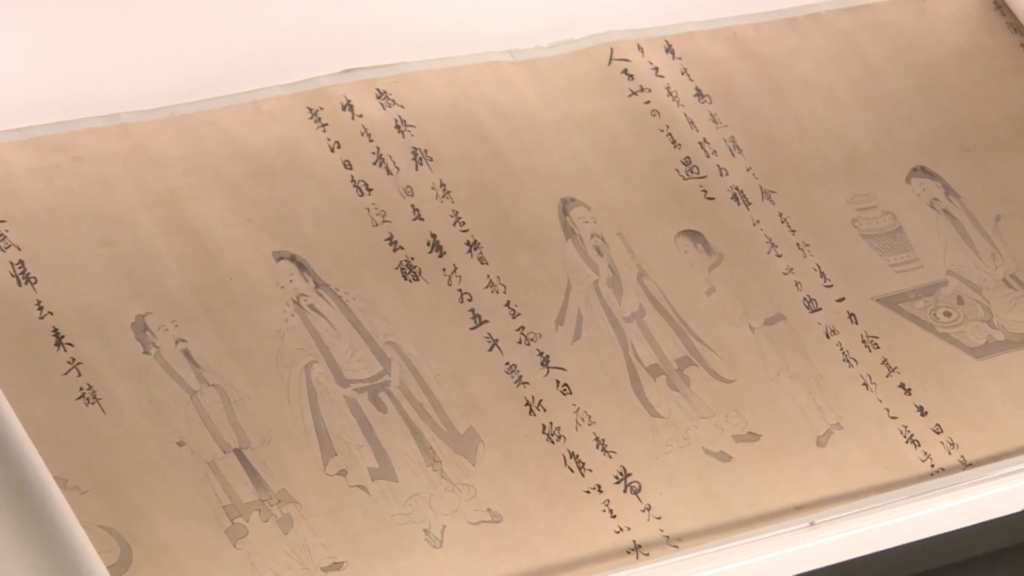 先生為彭澤令 送一力給其子書曰汝旦
夕之費自給為難 此力助汝薪水之勞
人子也可善遇之
歲終郡將遣督郵至縣吏白應束帶見之
先生歎曰吾豈能為五斗粟折腰 里小兒
日解綬去職
賦歸去來兮辭